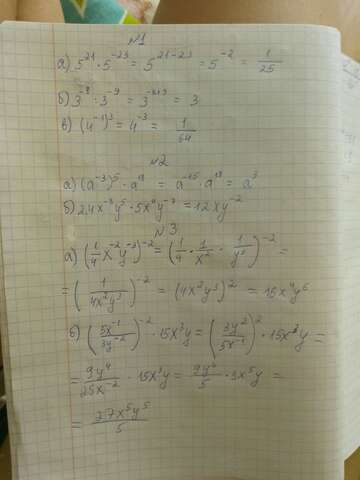 №1
а) 5²¹ · 5⁻²³ = 5²¹⁻²³ = 5⁻² = 1/25
б) 3⁻⁸ : 3⁻⁹ = 3⁻⁸⁺⁹ = 3
в) (4⁻¹)³ = 4⁻³ = 1/64
№2
а) (a⁻³)⁵ · a¹⁸ = a⁻¹⁵ · a¹⁸ = a³
б) 2,4x⁻⁸y⁵ · 5x⁹y⁻⁷ = 12xy⁻²
№3
а) (1/4 x⁻²y⁻³)⁻² = (1/4 · 1/x² · 1/y³)⁻² =
= (1/(4x²y³))⁻² = (4x²y³)² = 16x⁴y⁶
б) (5x⁻¹/3y⁻²)⁻² · 15x³y = (3y²/5x⁻¹)² · 15x³y =
= 9y⁴/25x⁻² · 15x³y = 9y⁴/5 · 3x⁵y =
= 27x⁵y⁵/5